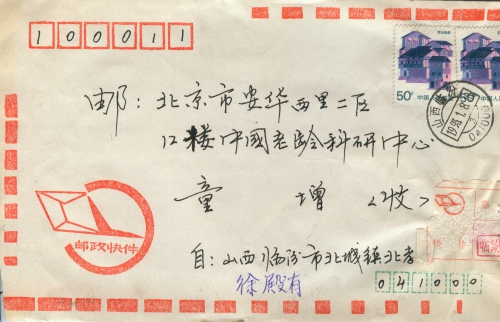 100011
50分
中国
50分
中国人
邮：北京市安华西里二区
12楼中国老龄科研中心
山西
童 增〈收〉
邮政快件
自：山西临汾市北城镇北孝
徐殿有
041000